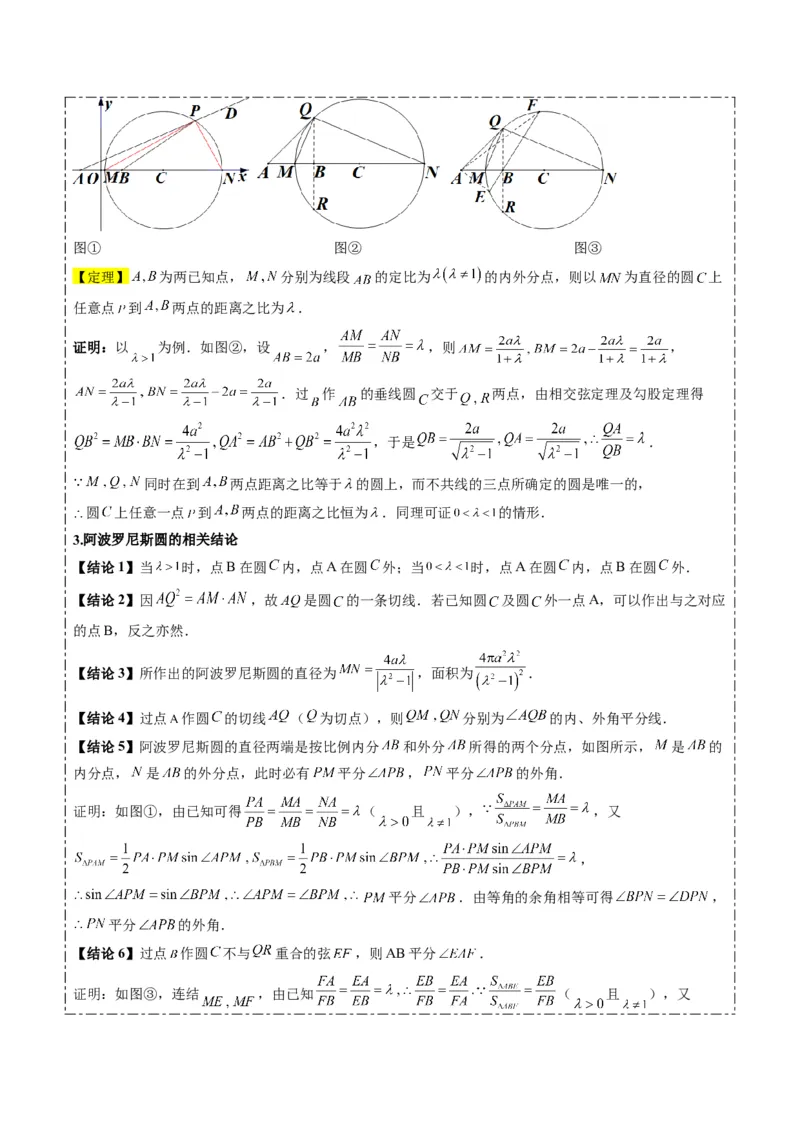 y P D A O M B C N x Q A M B C N R F Q A M B C N E R
图① 图② 图③
【定理】A, B为两已知点，M, N分别为线段AB的定比为λ(λ≠1)的内外分点，则以MN为直径的圆C上
任意点P到A, B两点的距离之比为λ.
证明：以λ>1为例．如图②，设AB=2a，AM/MB=AN/NB=λ，则AM=2aλ/(1+λ), BM=2a-2aλ/(1+λ)=2a/(1+λ)，
AN=2aλ/(λ-1), BN=2aλ/(λ-1)-2a=2a/(λ-1)．过B作AB的垂线圆C交于Q, R两点，由相交弦定理及勾股定理得
QB²=MB·BN=4a²/(λ²-1), QA²=AB²+QB²=4a²λ²/(λ²-1)，于是QB=2a/√(λ²-1), QA=2a/√(λ²-1), ∴QA/QB=λ.
∵M, Q, N同时在到A, B两点距离之比等于λ的圆上，而不共线的三点所确定的圆是唯一的，
∴圆C上任意一点P到A, B两点的距离之比恒为λ．同理可证0<λ<1的情形.
3.阿波罗尼斯圆的相关结论
【结论1】当λ>1时，点B在圆C内，点A在圆C外；当0<λ<1时，点A在圆C内，点B在圆C外.
【结论2】因AQ²=AM·AN，故AQ是圆C的一条切线．若已知圆C及圆C外一点A，可以作出与之对应
的点B，反之亦然.
【结论3】所作出的阿波罗尼斯圆的直径为MN=4aλ/|λ²-1|，面积为4πa²λ²/(λ²-1)².
【结论4】过点A作圆C的切线AQ（Q为切点），则QM, QN分别为∠AQB的内、外角平分线.
【结论5】阿波罗尼斯圆的直径两端是按比例内分AB和外分AB所得的两个分点，如图所示，M是AB的
内分点，N是AB的外分点，此时必有PM平分∠APB，PN平分∠APB的外角.
证明：如图①，由已知可得PA/PB=MA/MB=NA/NB=λ（λ>0且λ≠1），∵S△PAM/S△PBM=MA/MB=λ，又
S△PAM=1/2 PA·PM sin∠APM, S△PBM=1/2 PB·PM sin∠BPM, ∴PA·PM sin∠APM/PB·PM sin∠BPM=λ，
∴sin∠APM=sin∠BPM, ∴∠APM=∠BPM, ∴PM平分∠APB．由等角的余角相等可得∠BPN=∠DPN，
∴PN平分∠APB的外角.
【结论6】过点B作圆C不与QR重合的弦EF，则AB平分∠EAF.
证明：如图③，连结ME, MF，由已知FA/FB=EA/EB=λ, ∴EB/FB=EA/FA. ∵S△ABE/S△ABF=EB/FB（λ>0且λ≠1），又